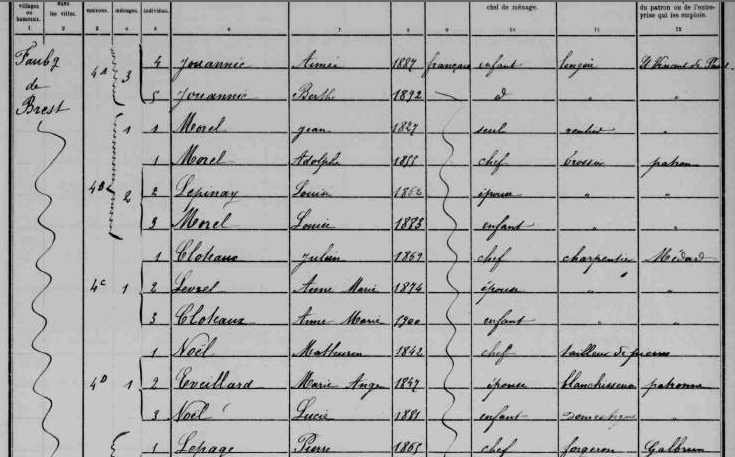 villages ou hameaux. dans les villes. maisons. ménages. individus. chef de ménage. du patron ou de l'entreprise qui les emploie.
1 2 3 4 5 6 7 8 9 10 11 12
Faubg de Brest 4A 3 4 Jouannic Aimée 1887 française enfant lingère St Vincent de Paul
5 Jouannic Berthe 1892 d " "
1 1 Morel Jean 1827 seul rentier "
4B 2 1 Morel Adolphe 1855 chef brossier patron
2 Lepinay Louise épouse " "
3 Morel Louise 1883 enfant " "
4C 1 1 Cloteaux Julien 1869 chef charpentier Médard
2 Levrel Anne Marie 1874 épouse " "
3 Cloteaux Anne Marie 1900 enfant " "
4D 1 1 Noël Mathurin 1842 chef tailleur de pierres
2 Eveillard Marie Ange 1847 épouse blanchisseuse patronne
3 Noël Lucie 1881 enfant domestique "
1 Lepage Pierre 1865 chef forgeron Galbrun